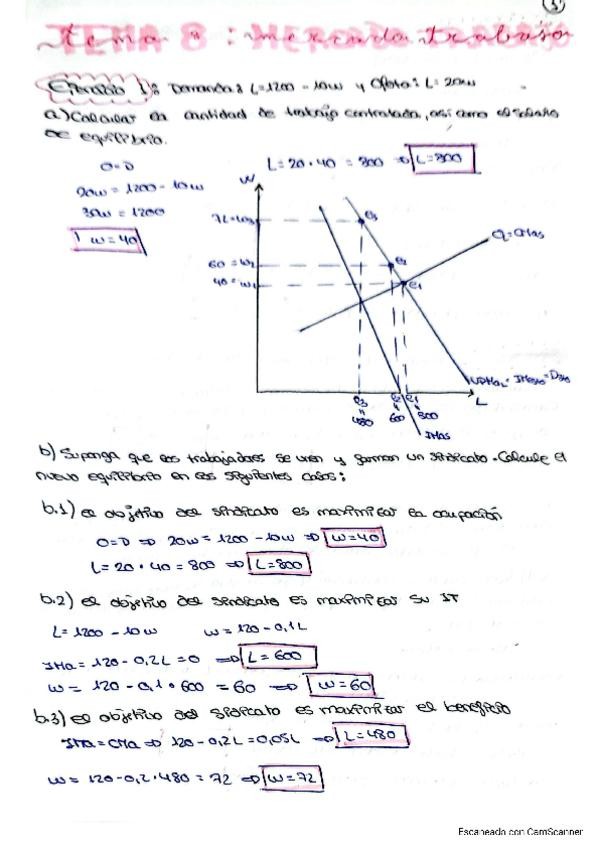 Tema 8: mercado trabajo
Ejercicio 1: Demanda: L=1200-10w y Oferta: L=20w
a) Calcular la cantidad de trabajo contratada, así como el salario
de equilibrio.
O=D
L=20·40 = 800 => L=800
20w = 1200-10w
30w = 1200
w=40
w
72=w3
60=w2
40=w1
e3
e2
e1
e3 e2 e1
480 600 800
L
IMaS
b) Suponga que los trabajadores se unen y forman un sindicato. Calcule el
nuevo equilibrio en los siguientes casos:
b.1) el objetivo del sindicato es maximizar la ocupación
O=D => 20w = 1200-10w => w=40
L=20·40 = 800 => L=800
b.2) el objetivo del sindicato es maximizar su IT
L=1200-10w w=120-0,1L
IMa=120-0,2L=0 => L=600
w= 120-0,1·600 = 60 => w=60
b.3) el objetivo del sindicato es maximizar el beneficio
IMa=CMa => 120-0,2L=0,05L => L=480
w= 120-0,2·480 = 72 => w=72
Escaneado con CamScanner